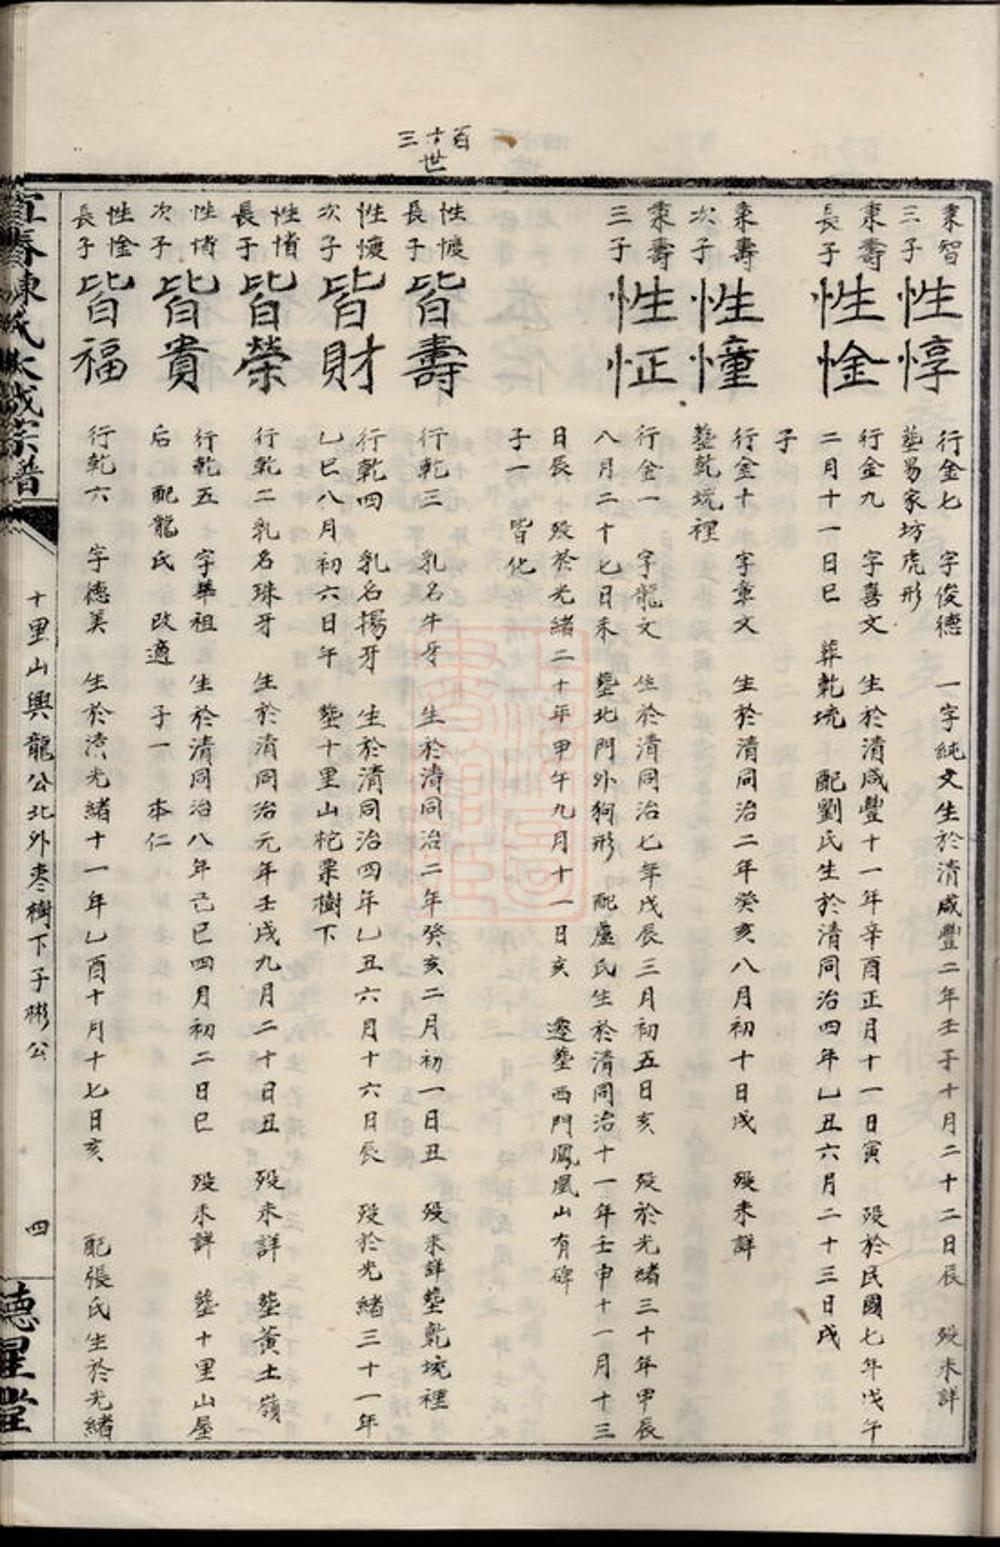 百十三世
秉智三子
性惇
行金七　字俊德　一字純文生於清咸豐二年壬子十月二十二日辰　歿未詳
塟易家坊虎形
秉壽長子
性淦
行金九　字喜文　生於清咸豐十一年辛酉正月十一日寅　歿於民國七年戊午
二月十一日巳　葬乾坑　配劉氏生於清同治四年乙丑六月二十三日戌
子
秉壽次子
性憧
行金十　字章文　生於清同治二年癸亥八月初十日戌　歿未詳
塟乾坑裡
秉壽三子
性怔
行金一　字龍文　生於清同治七年戊辰三月初五日亥　歿於光緒三十年甲辰
八月二十七日未　塟北門外狗形　配盧氏生於清同治十一年壬申十一月十三
日辰　歿於光緒二十年甲午九月十一日亥　遷塟西門鳳凰山有碑
子一　皆化
性㥄長子
皆壽
行乾三　乳名牛牙　生於清同治二年癸亥二月初一日丑　歿未詳塟乾坑裡
次子
皆財
行乾四　乳名揚牙　生於清同治四年乙丑六月十六日辰　歿於光緒三十一年
乙巳八月初六日午　塟十里山柁栗樹下
長子
皆榮
行乾二乳名珠牙　生於清同治元年壬戌九月二十日丑　歿未詳　塟黃土嶺
次子
皆貴
行乾五　字華祖　生於清同治八年己巳四月初二日巳　歿未詳　塟十里山屋
后　配龍氏　改適　子一　本仁
性淦長子
皆福
行乾六　字德美　生於清光緒十一年乙酉十月十七日亥　配張氏生於光緒
宜春陳氏大成宗譜
十里山興龍公北外棗樹下子彬公
四
德星堂